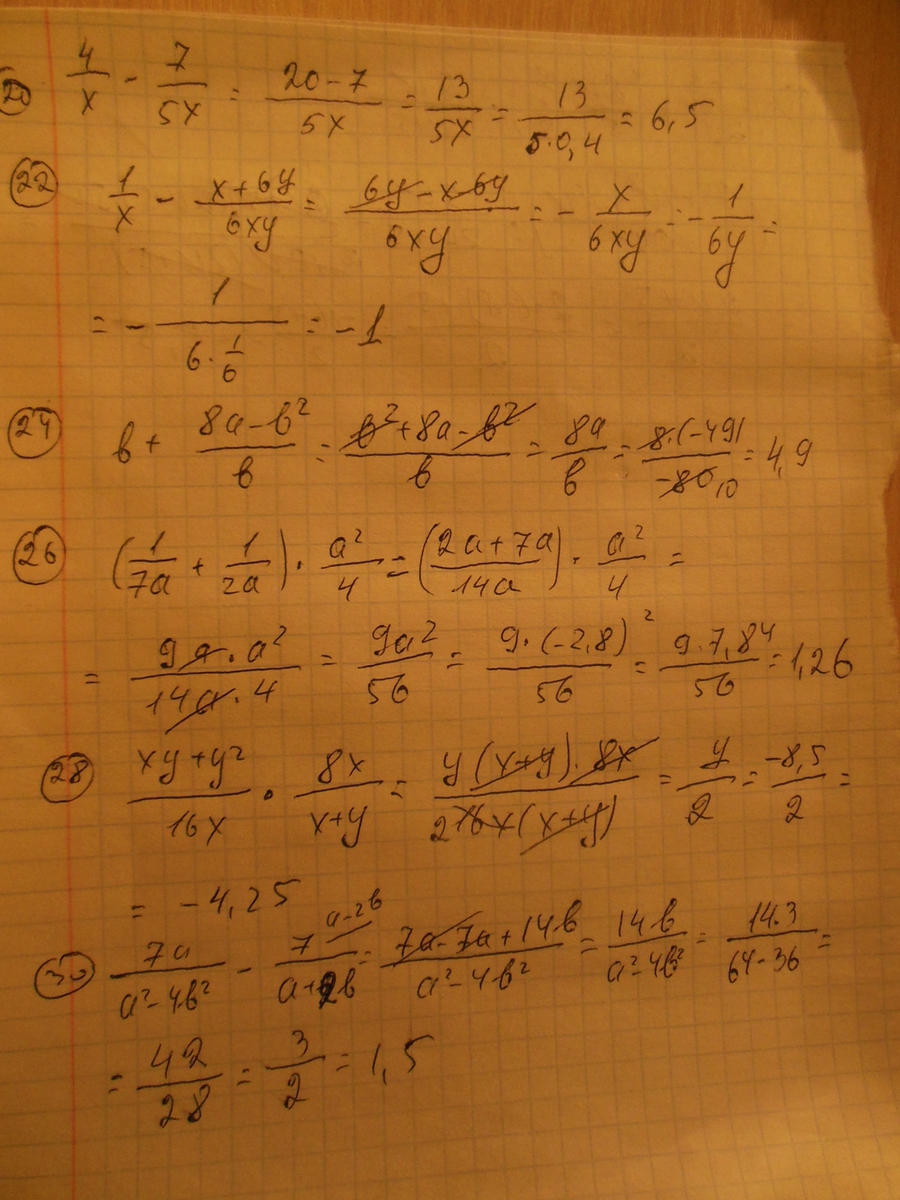 20 4/x - 7/5x = 20-7/5x = 13/5x = 13/5·0,4 = 6,5
22 1/x - x+6y/6xy = 6y-x-6y/6xy = - x/6xy = - 1/6y =
= - 1/6·1/6 = -1
24 b + 8a-b²/b = b²+8a-b²/b = 8a/b = 8·(-49)/-80 10 = 4,9
26 (1/7a + 1/2a) · a²/4 = (2a+7a/14a) · a²/4 =
= 9a·a²/14a·4 = 9a²/56 = 9·(-2,8)²/56 = 9·7,84/56 = 1,26
28 xy+y²/16x · 8x/x+y = y(x+y)·8x/2 16x(x+y) = y/2 = -8,5/2 =
= -4,25
30 7a/a²-4b² - 7 a-2b/a+2b = 7a-7a+14b/a²-4b² = 14b/a²-4b² = 14·3/64-36 =
= 42/28 = 3/2 = 1,5